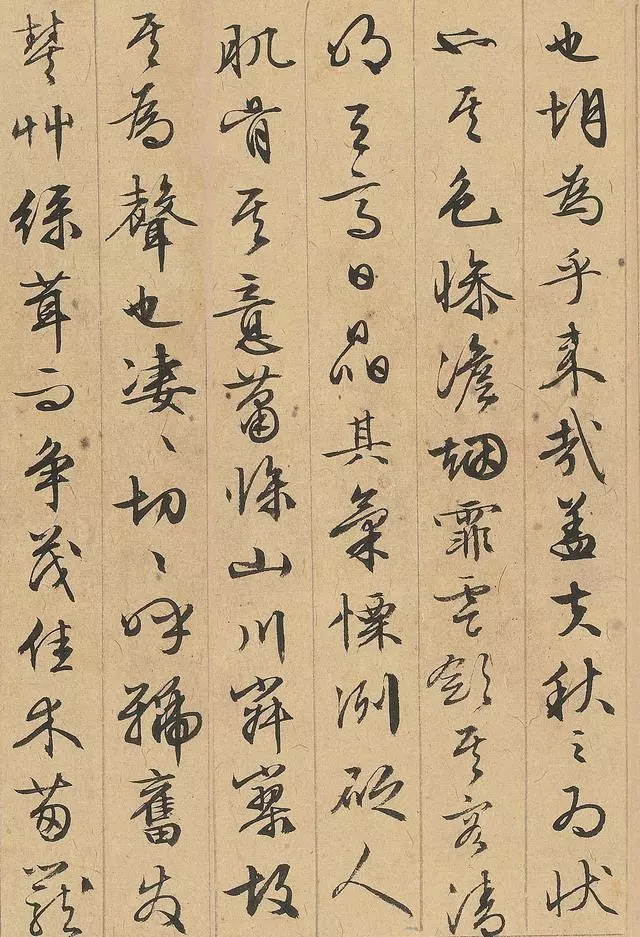 也胡為乎來哉蓋夫秋之為狀
也其色慘澹烟霏雲斂其容清
明天高日晶其氣慄冽砭人
肌骨其意蕭條山川寂寥故
其為聲也凄〻切〻呼號奮發
豐草綠茸而爭茂佳木葱蘢